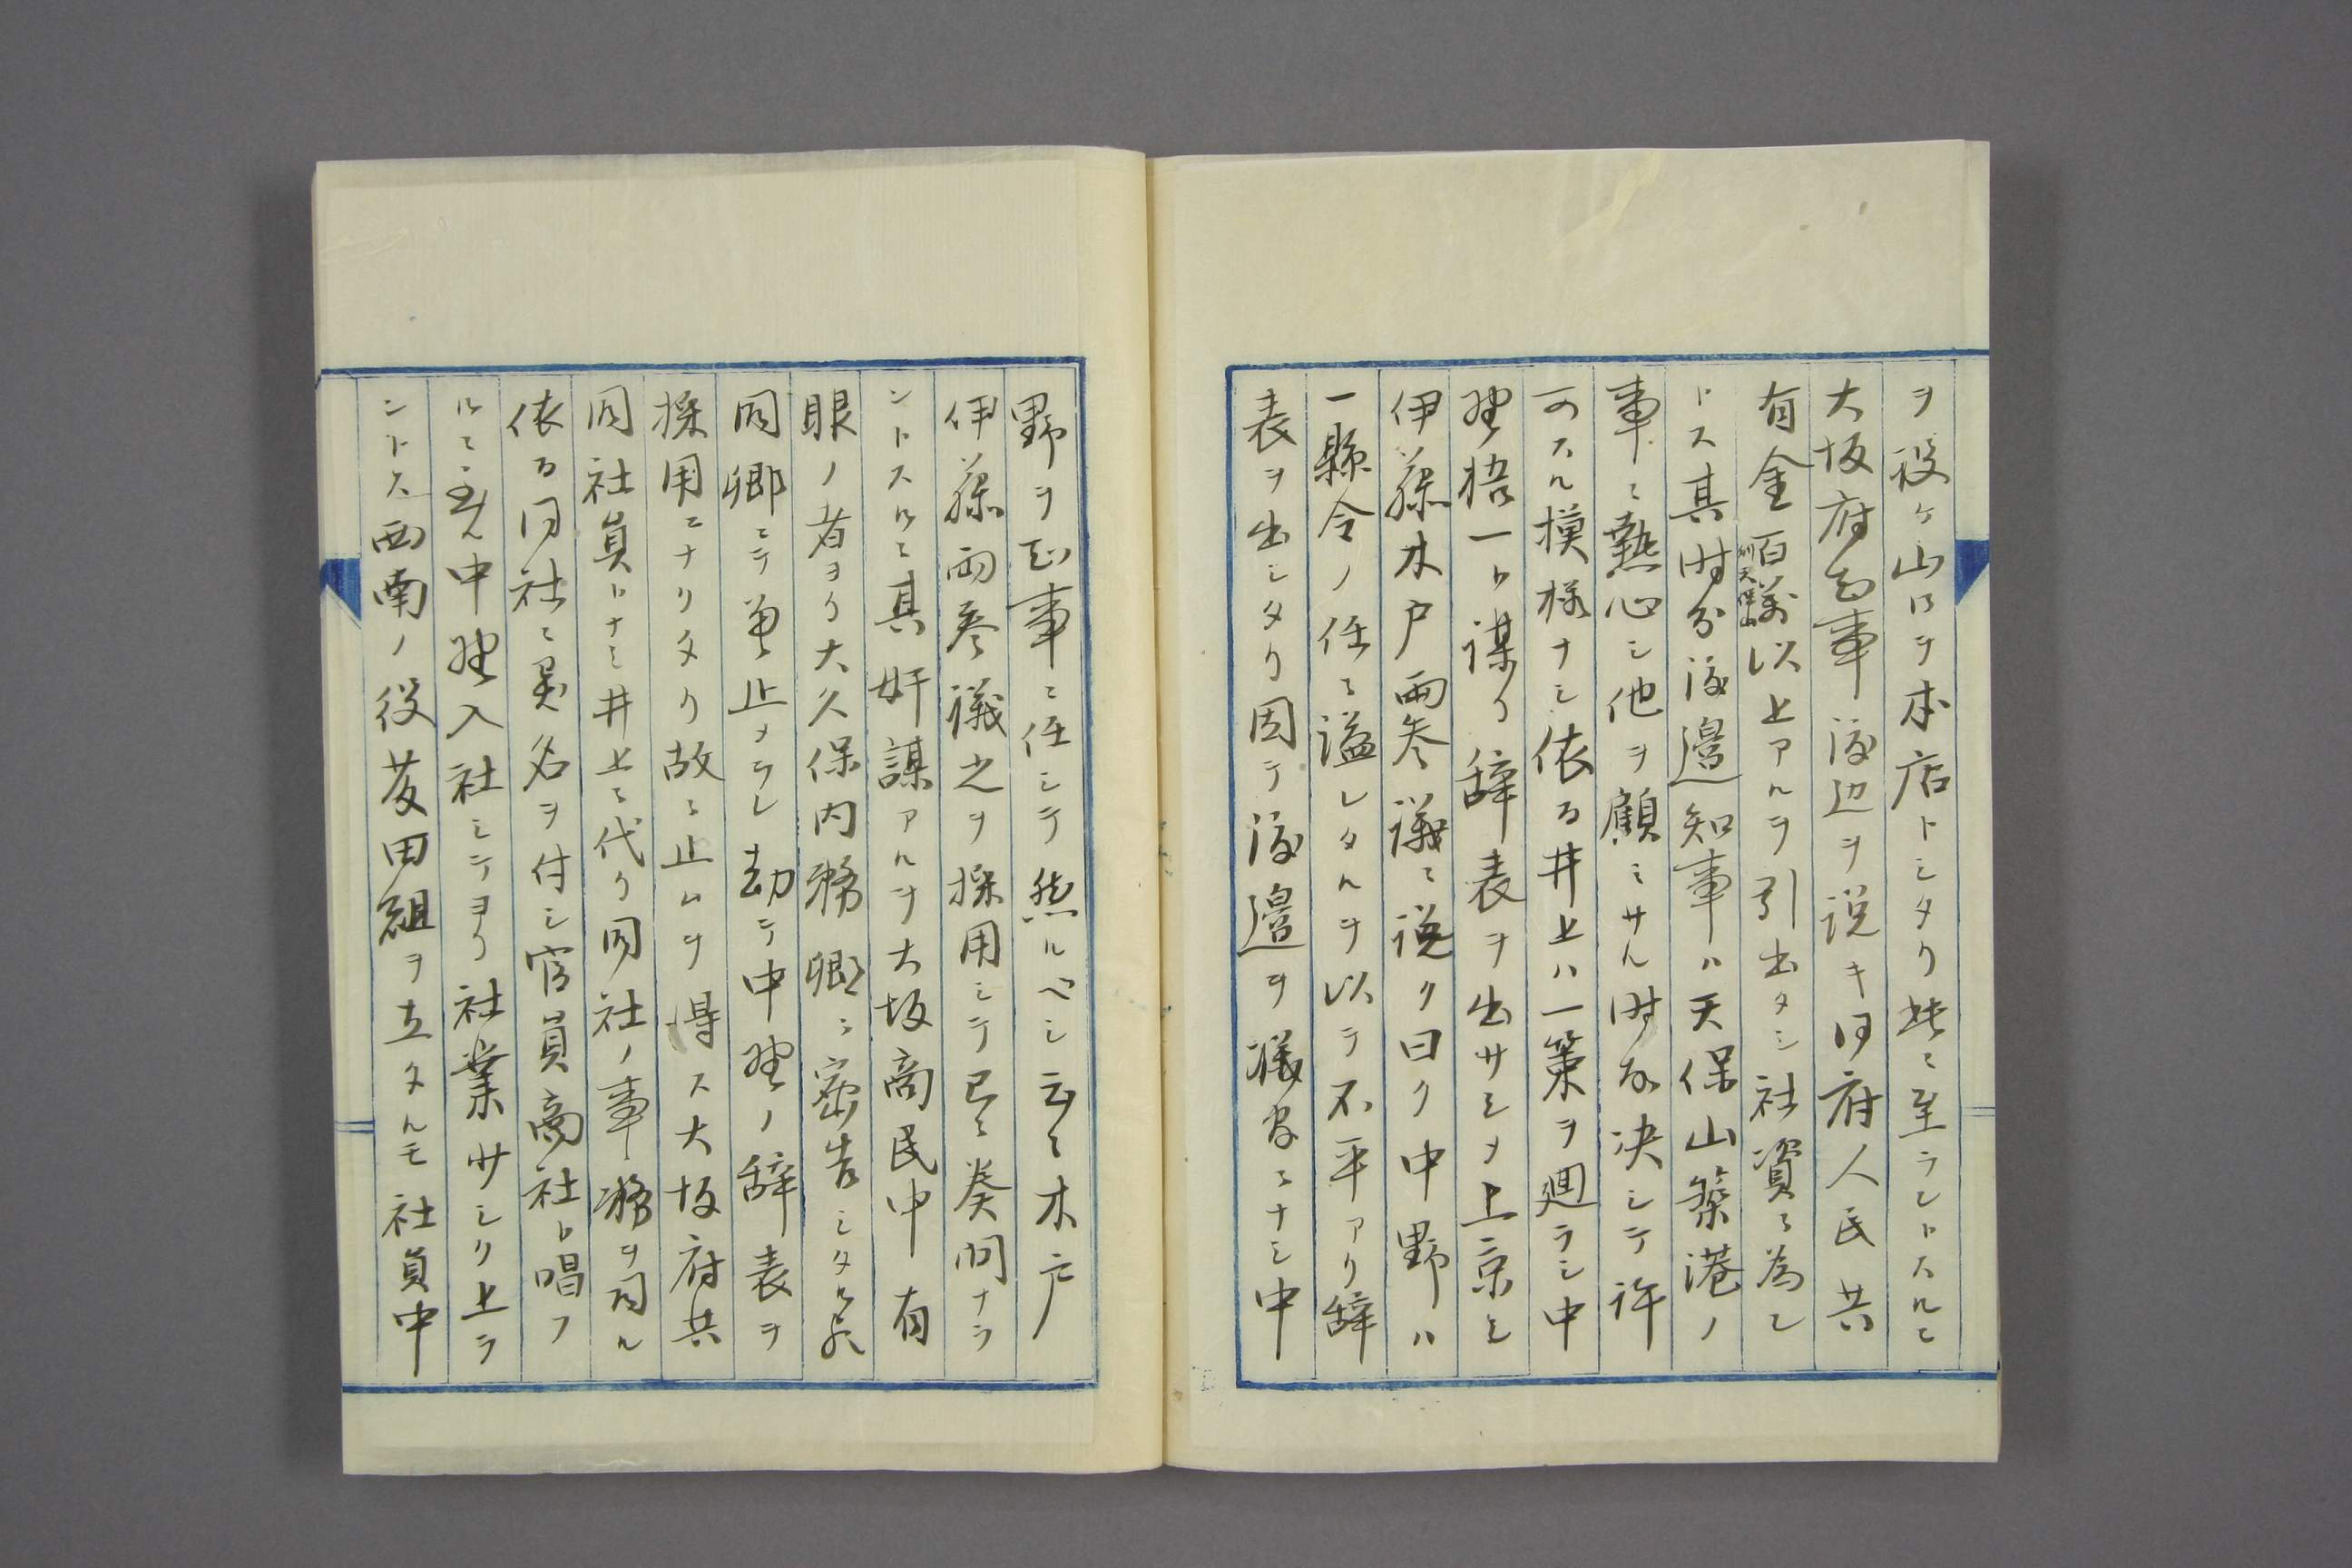 ヲ設ケ山口ヲ本店トシタリ此ニ至ラントスルニ
大坂府知事渡辺ヲ説キ同府人民共
有金百萬以上アルヲ引出タシ社資ニ為シ
天保山
トス其時分渡邉知事ハ天保山築港ノ
事ニ熱心シ他ヲ顧ミサル時故決シテ許
可スル模様ナシ依る井上ハ一策ヲ廻ラシ中
野梧一ト謀リ辞表ヲ出サシメ上京シ
伊藤木戸両参議ニ説ク曰ク中野ハ
一縣令ノ任ニ溢レタルヲ以テ不平アリ辞
表ヲ出シタリ因テ渡邉ヲ議官ニナシ中
野ヲ知事ニ任シテ然ルベシ云々木戸
伊藤両参議之ヲ採用シテ已ニ奏聞ナラ
ントスルニ其奸謀アルヲ大坂商民中有
眼ノ者ヨリ大久保内務卿ニ密告シタル故
同卿ニテ差止メラレ却テ中野ノ辞表ヲ
採用ニナリタリ故ニ止ムヲ得ス大坂府共
同社員トナシ井上ニ代リ同社ノ事務ヲ司ル
依る同社ニ異名ヲ付シ官員商社ト唱フ
ルニ至ル中野入社シテヨリ社業サシク上ラ
ントス西南ノ役藤田組ヲ立タルモ社員中